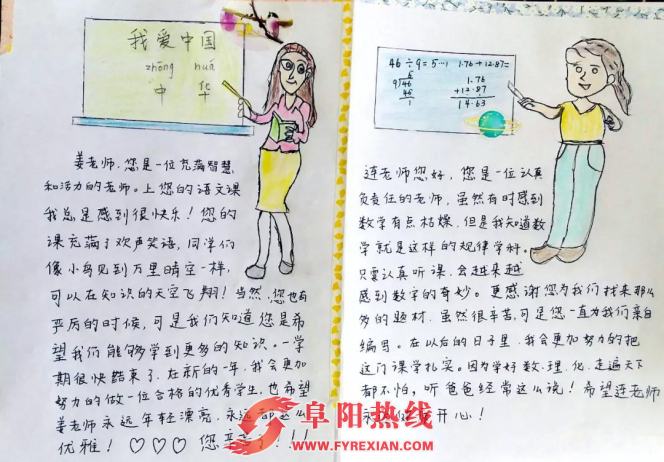 我爱中国
zhōng huá
中 华
姜老师,您是一位充满智慧
和活力的老师。上您的语文课
我总是感到很快乐!您的
课充满了欢声笑语,同学们
像小鸟见到万里晴空一样,
可以在知识的天空飞翔!当然,您也有
严厉的时候,可是我们知道您是希
望我们能够学到更多的知识。一学
期很快结束了,在新的一年,我会更加
努力的做一位合格的优秀学生,也希望
姜老师永远年轻漂亮,永远都这么
优雅!♡♡♡ 您辛苦了!!!
46÷9=5…1 1.76+12.87=
5
9√46
45
1
1.76
+12.87
14.63
连老师您好,您是一位认真
负责任的老师,虽然有时感到
数学有点枯燥,但是我知道数
学就是这样的规律学科。
只要认真听课,会越来越
感到数学的奇妙。更感谢您为我们找来那么
多的题材,虽然很辛苦,可是您一直为我们亲自
编写。在以后的日子里,我会更加努力的把
这门课学扎实。因为学好数、理、化,走遍天下
都不怕,听爸爸经常这么说!希望连老师
开心!
阜阳热线
WWW.FYREXIAN.COM